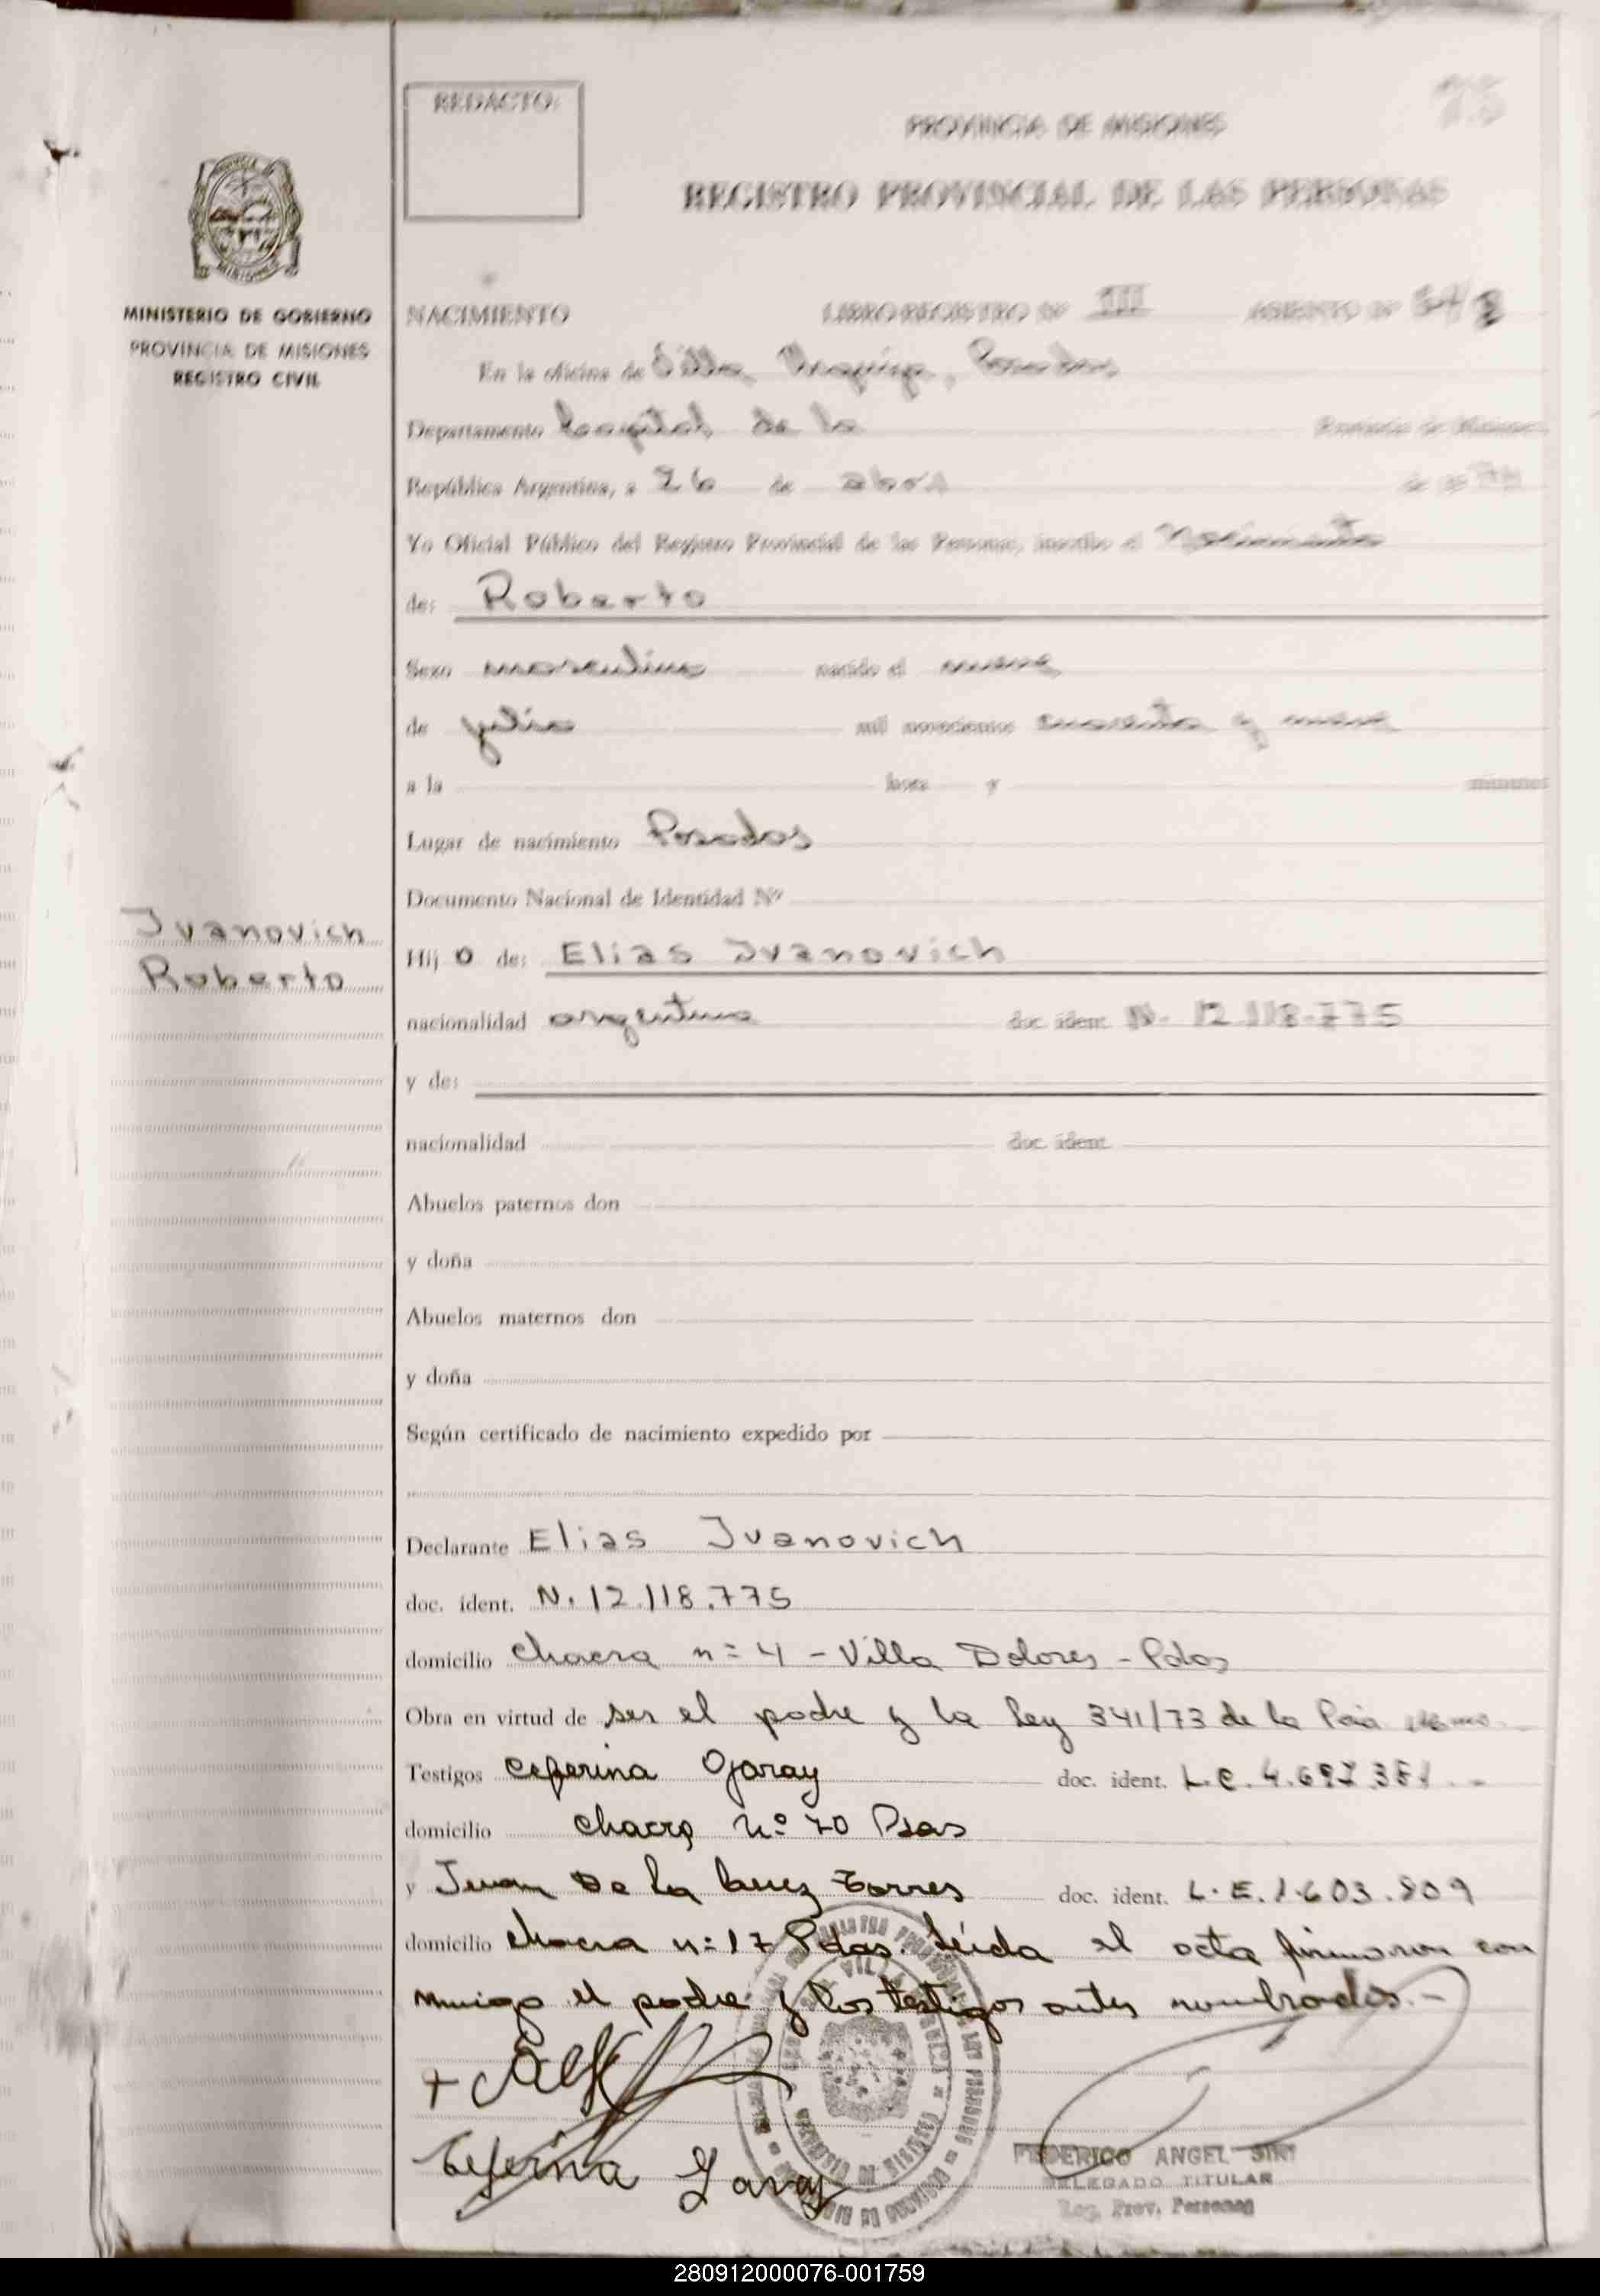 75
REDACTO:
PROVINCIA DE MISIONES
REGISTRO PROVINCIAL DE LAS PERSONAS
MINISTERIO DE GOBIERNO
PROVINCIA DE MISIONES
REGISTRO CIVIL
NACIMIENTO LIBRO REGISTRO Nº III ASIENTO Nº
En la oficina de Villa Urquiza, Posadas
Departamento Capital de la Provincia de Misiones,
República Argentina, a 26 de abril de 19
Yo Oficial Público del Registro Provincial de las Personas, inscribo el Nacimiento
de: Roberto
Sexo masculino nacido el nueve
de julio mil novecientos cuarenta y nueve
a la hora y minutos
Lugar de nacimiento Posadas
Documento Nacional de Identidad Nº
Ivanovich
Roberto
Hij o de: Elias Ivanovich
nacionalidad argentina doc. ident. N. 12.118.775
y de:
nacionalidad doc. ident.
Abuelos paternos don
y doña
Abuelos maternos don
y doña
Según certificado de nacimiento expedido por
Declarante Elias Ivanovich
doc. ident. N. 12.118.775
domicilio chacra n= 4 - Villa Dolores - Pdas
Obra en virtud de ser el padre y la Ley 341/73 de la Pcia
Testigos Ceferina Garay doc. ident. L.C. 4.697.351
domicilio chacra Nº 70 Psas
y Juan De la Cruz Torres doc. ident. L.E. 1.603.809
domicilio chacra n= 17 Pdas. Leída el acta firmaron con
migo el padre y los testigos antes nombrados.-
Ceferina Garay
FEDERICO ANGEL SIRI
DELEGADO TITULAR
Reg. Prov. Personas
280912000076-001759